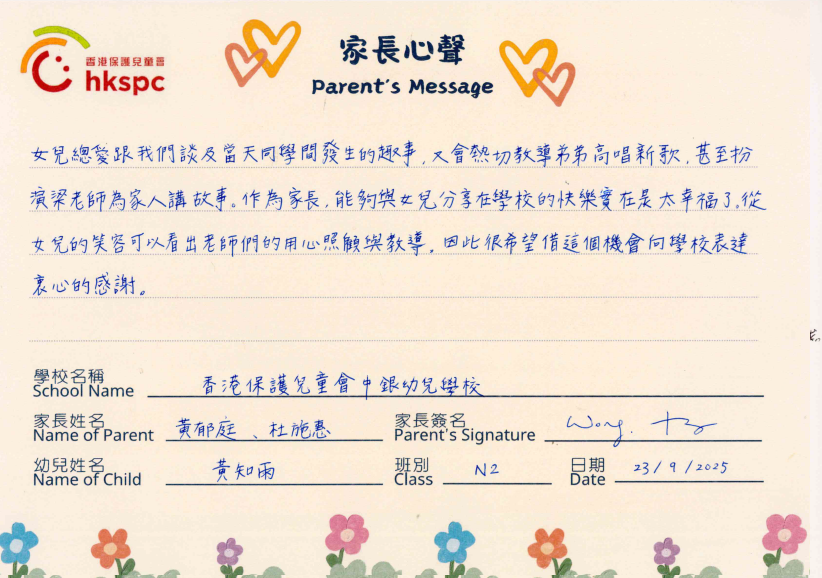 香港保護兒童會
hkspc
家長心聲
Parent's Message
女兒總愛跟我們談及當天同學間發生的趣事,又會熱切教導弟弟高唱新歌,甚至扮
演梁老師為家人講故事。作為家長,能夠與女兒分享在學校的快樂實在是太幸福了。從
女兒的笑容可以看出老師們的用心照顧與教導,因此很希望借這個機會向學校表達
衷心的感謝。
學校名稱
School Name 香港保護兒童會中銀幼兒學校
家長姓名
Name of Parent 黃郁庭、杜施惠
家長簽名
Parent's Signature Wong.
幼兒姓名
Name of Child 黃知雨
班別
Class N2
日期
Date 23/9/2025